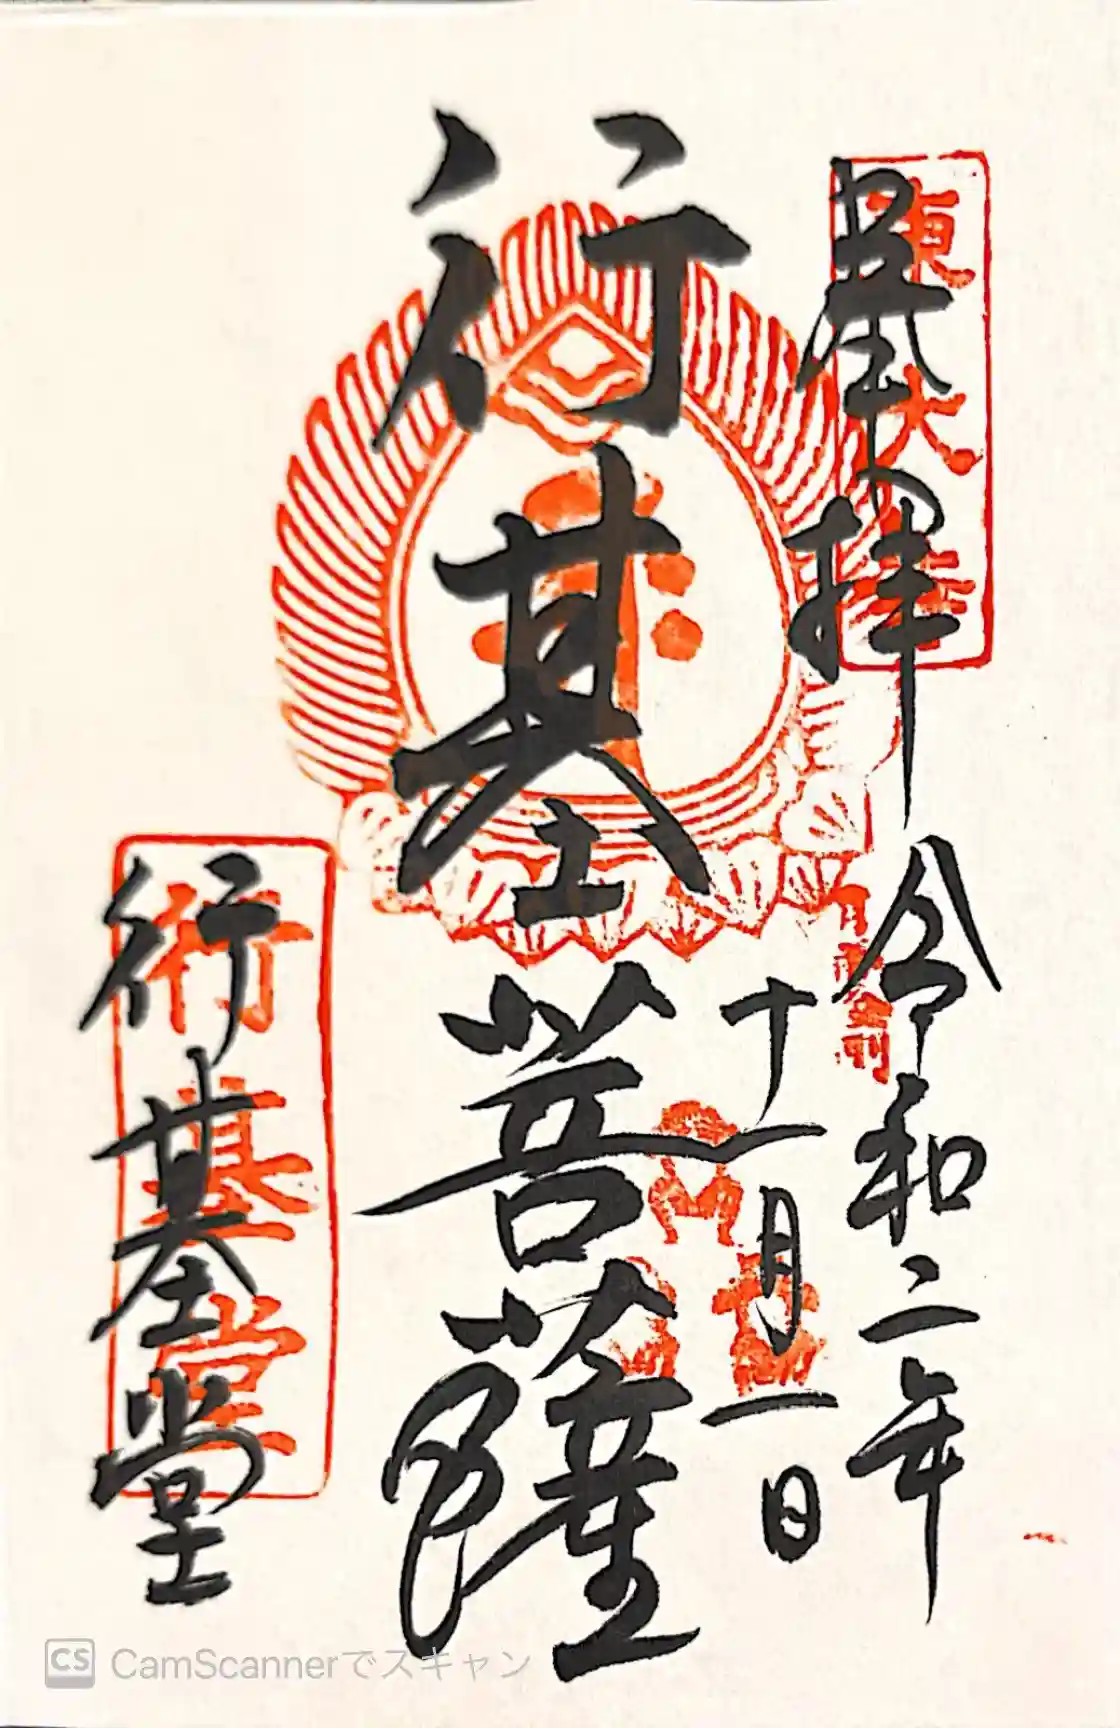 奉拝
東大寺
令和二年
十一月一日
行基菩薩
行基堂
行基堂
CS CamScannerでスキャン